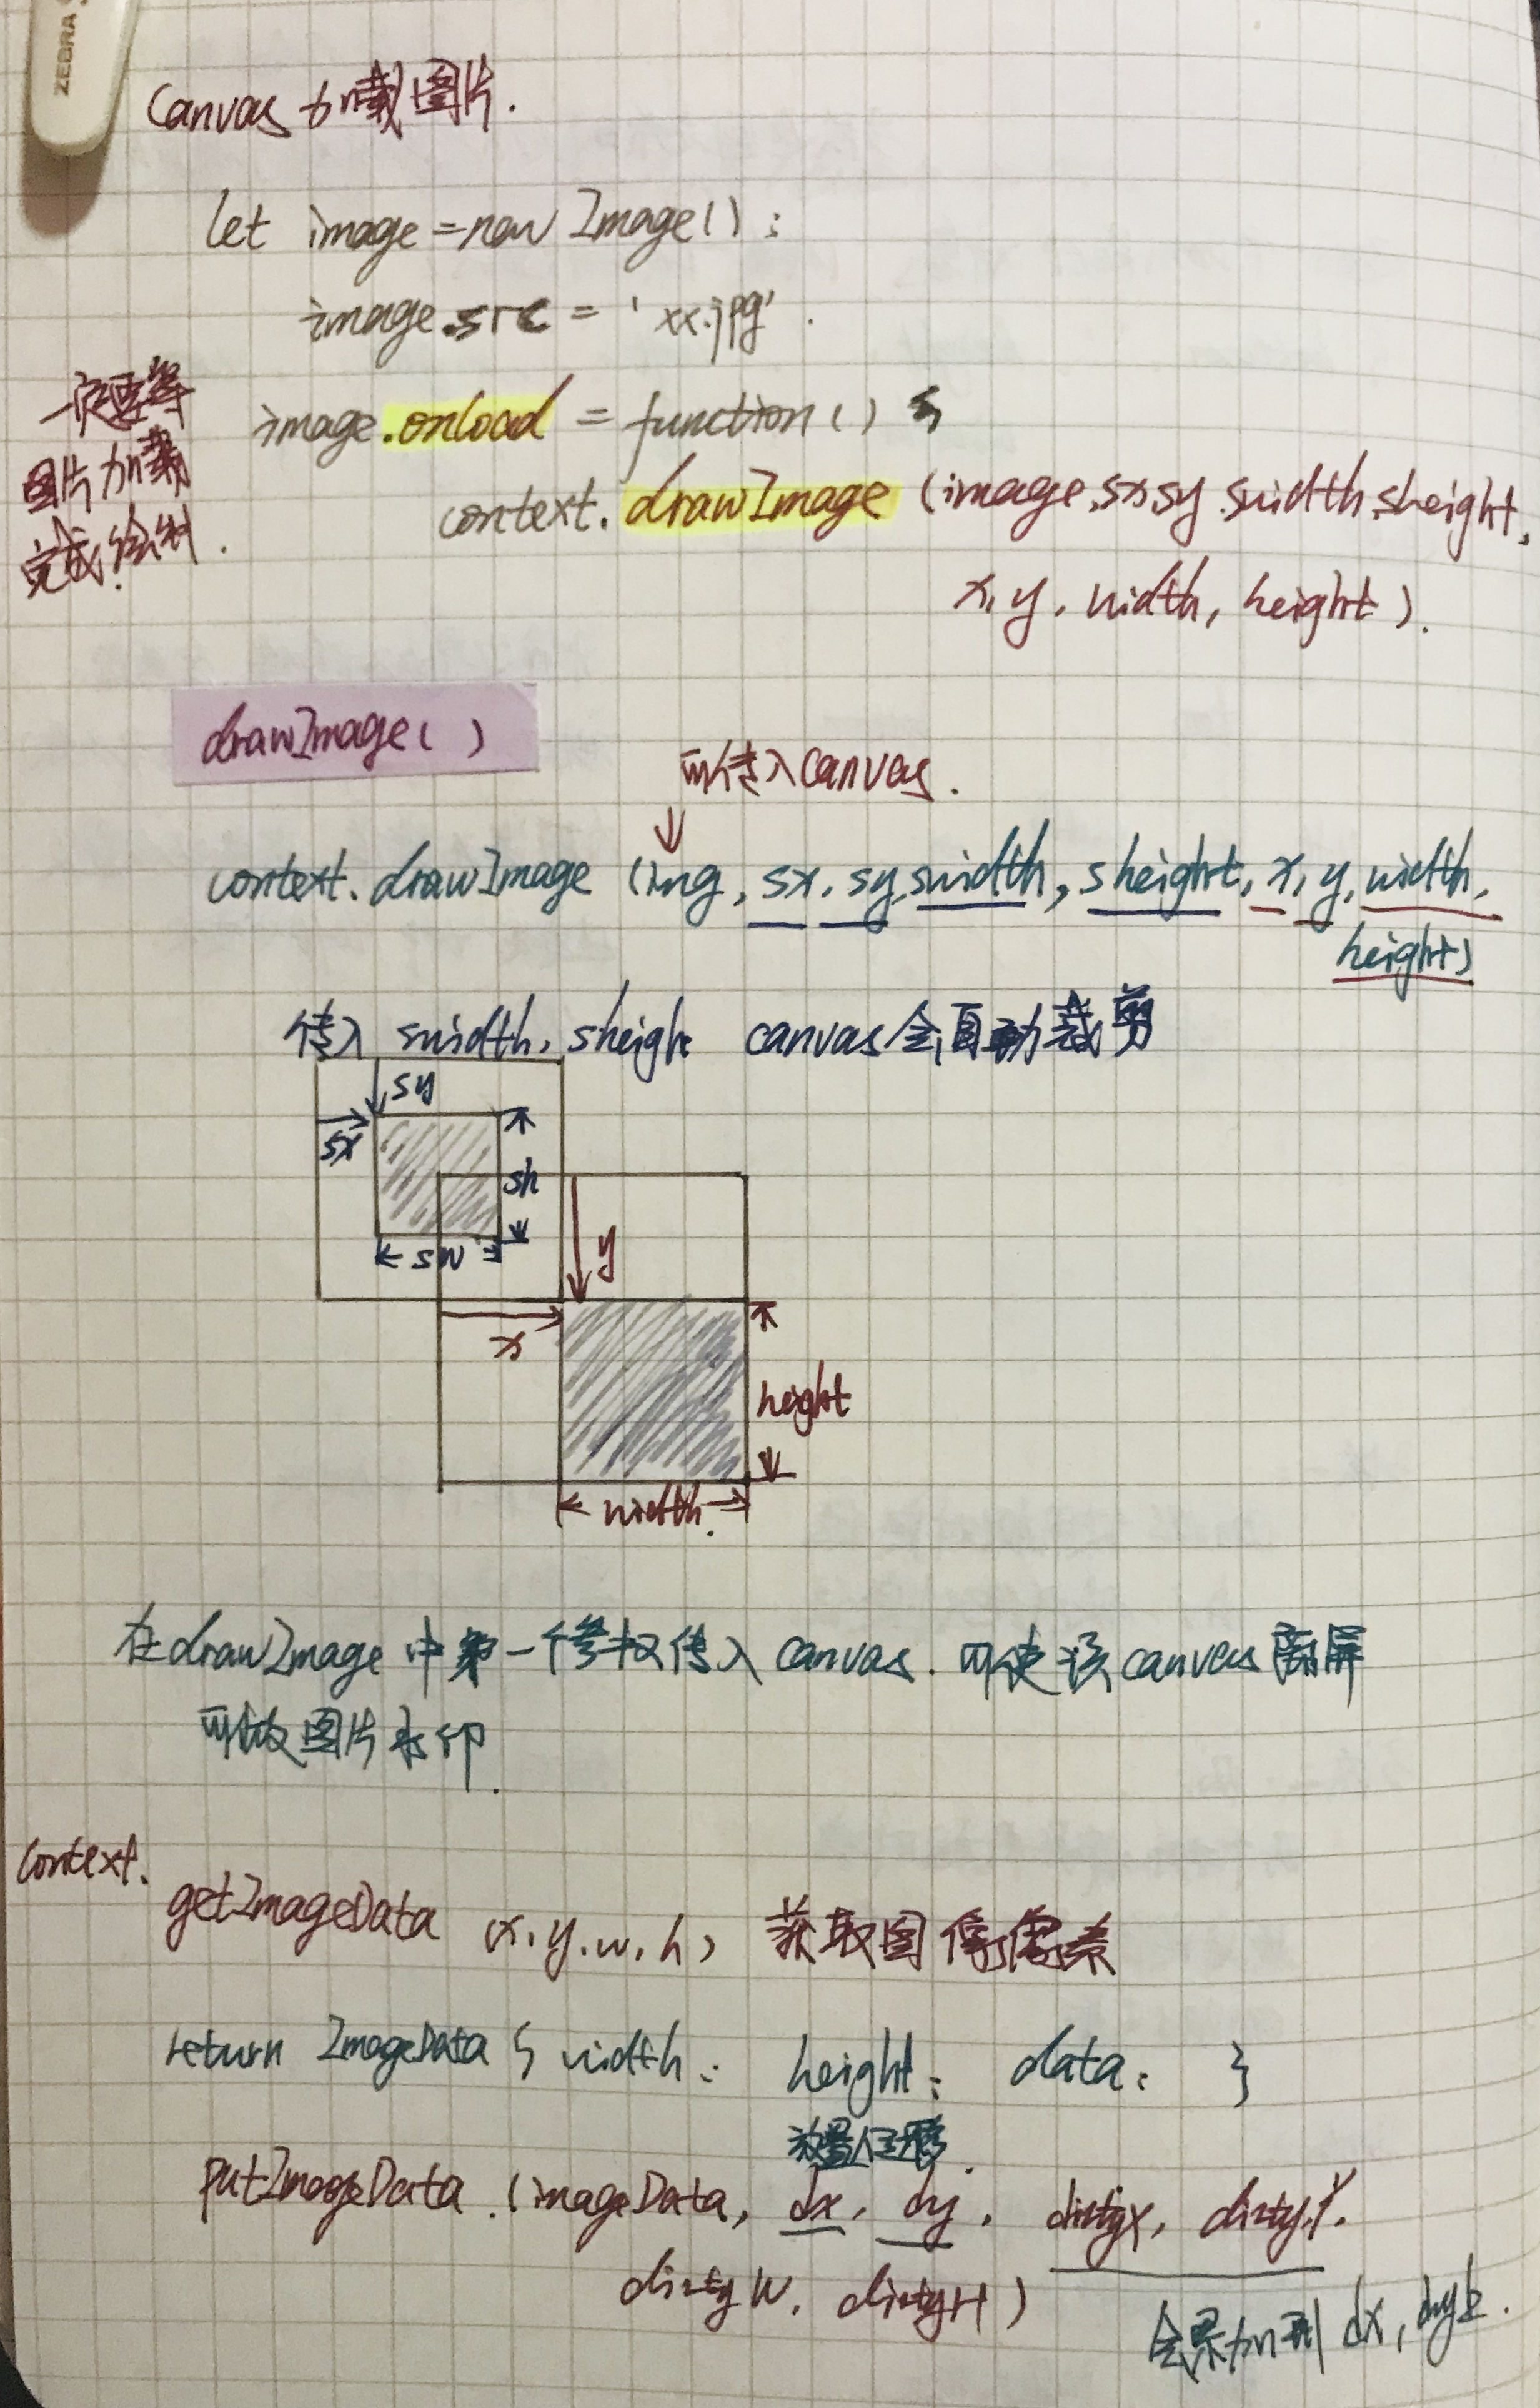 ZEBRA
Canvas 加载图片.
let image = new Image();
image.src = 'xx.jpg'.
一定要等
图片加载
完成绘制.
image.onload = function() {
context.drawImage (image, sx, sy, swidth, sheight,
x, y, width, height).
drawImage( )
可传入canvas.
context.drawImage (img, sx, sy, swidth, sheight, x, y, width,
height)
传入 swidth, sheight canvas会自动裁剪
sy
sx
sh
sw
y
x
height
width.
在drawImage 中第一个参数传入canvas. 可使该canvas离屏
可做图片水印.
context.
getImageData (x, y, w, h) 获取图像像素
return ImageData { width: height: data: }
放置位移.
putImageData.(imageData, dx, dy, dirtyX, dirtyY.
dirtyW, dirtyH)
会累加到 dx, dy上.